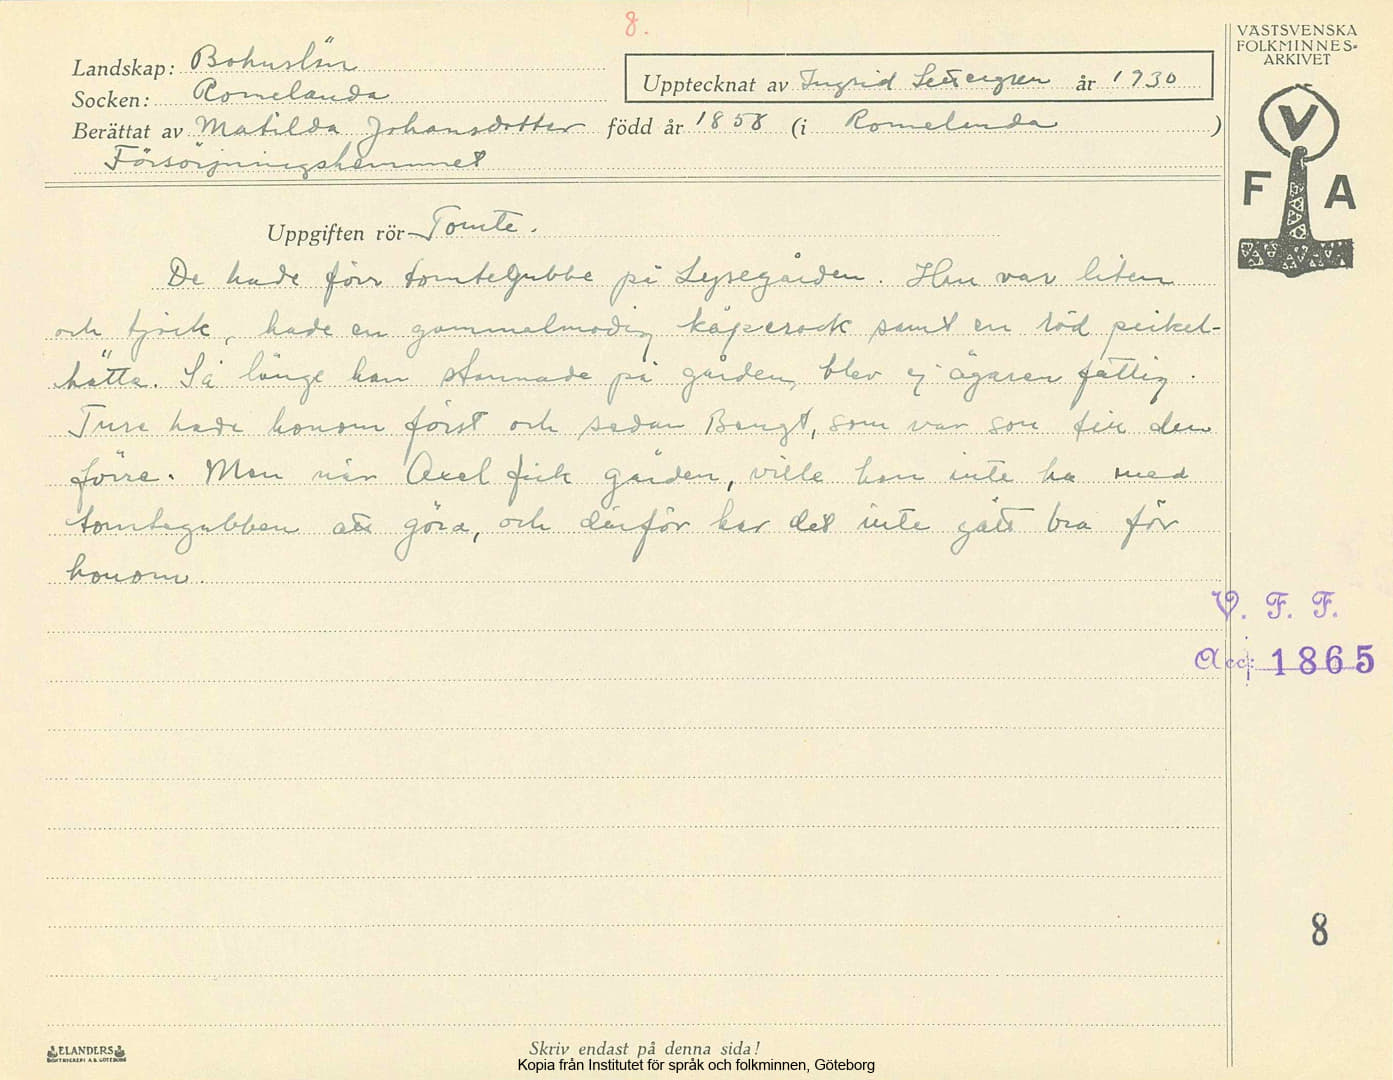 8.
VÄSTSVENSKA
FOLKMINNES-
ARKIVET
Landskap: Bohuslän
Upptecknat av Ingrid år 1930
Socken: Romelanda
Berättat av Matilda Johansdotter född år 1858 (i Romelanda)
Försörjningshemmet
V
F A
Uppgiften rör Tomte.
De hade förr tomtegubbe på Lysegården. Han var liten
och tjock, hade en gammalmodig kåperock samt en röd pickel-
hätta. Så länge han stannade på gården, blev ej ägaren fattig.
Ture hade honom först och sedan Bengt, som var son till den
förre. Men när Axel fick gården, ville han inte ha med
tomtegubben att göra, och därför har det inte gått bra för
honom.
V. F. F.
Acc: 1865
8
ELANDERS
BOKTRYCKERI A.B. GÖTEBORG
Skriv endast på denna sida!
Kopia från Institutet för språk och folkminnen, Göteborg